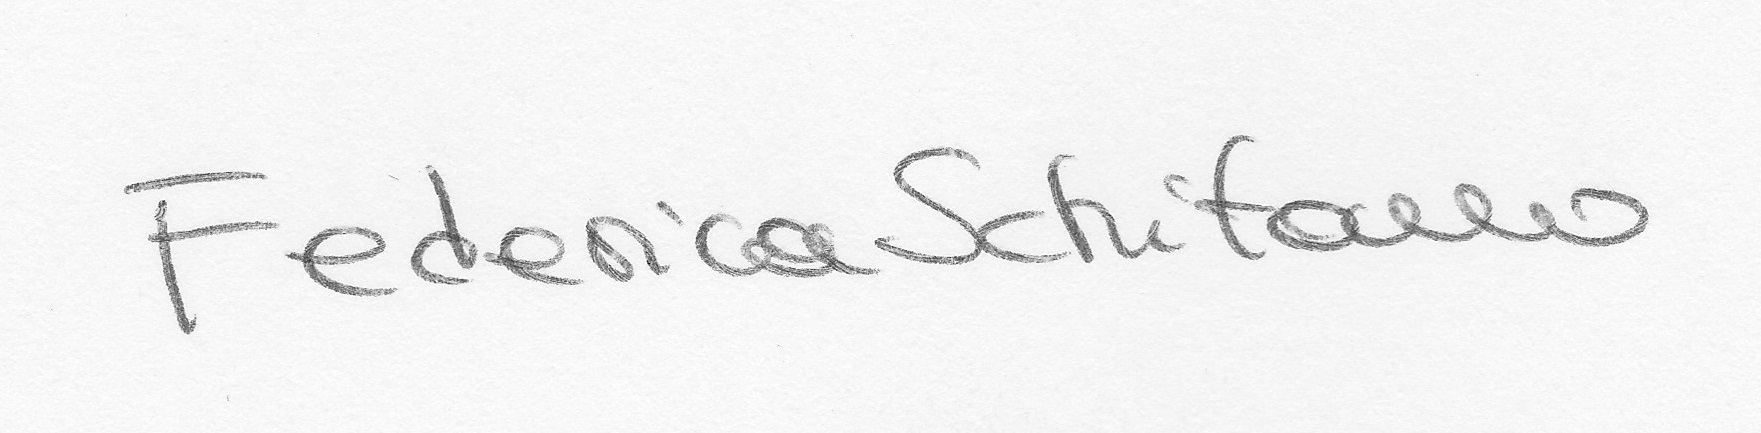 Federica Schitano